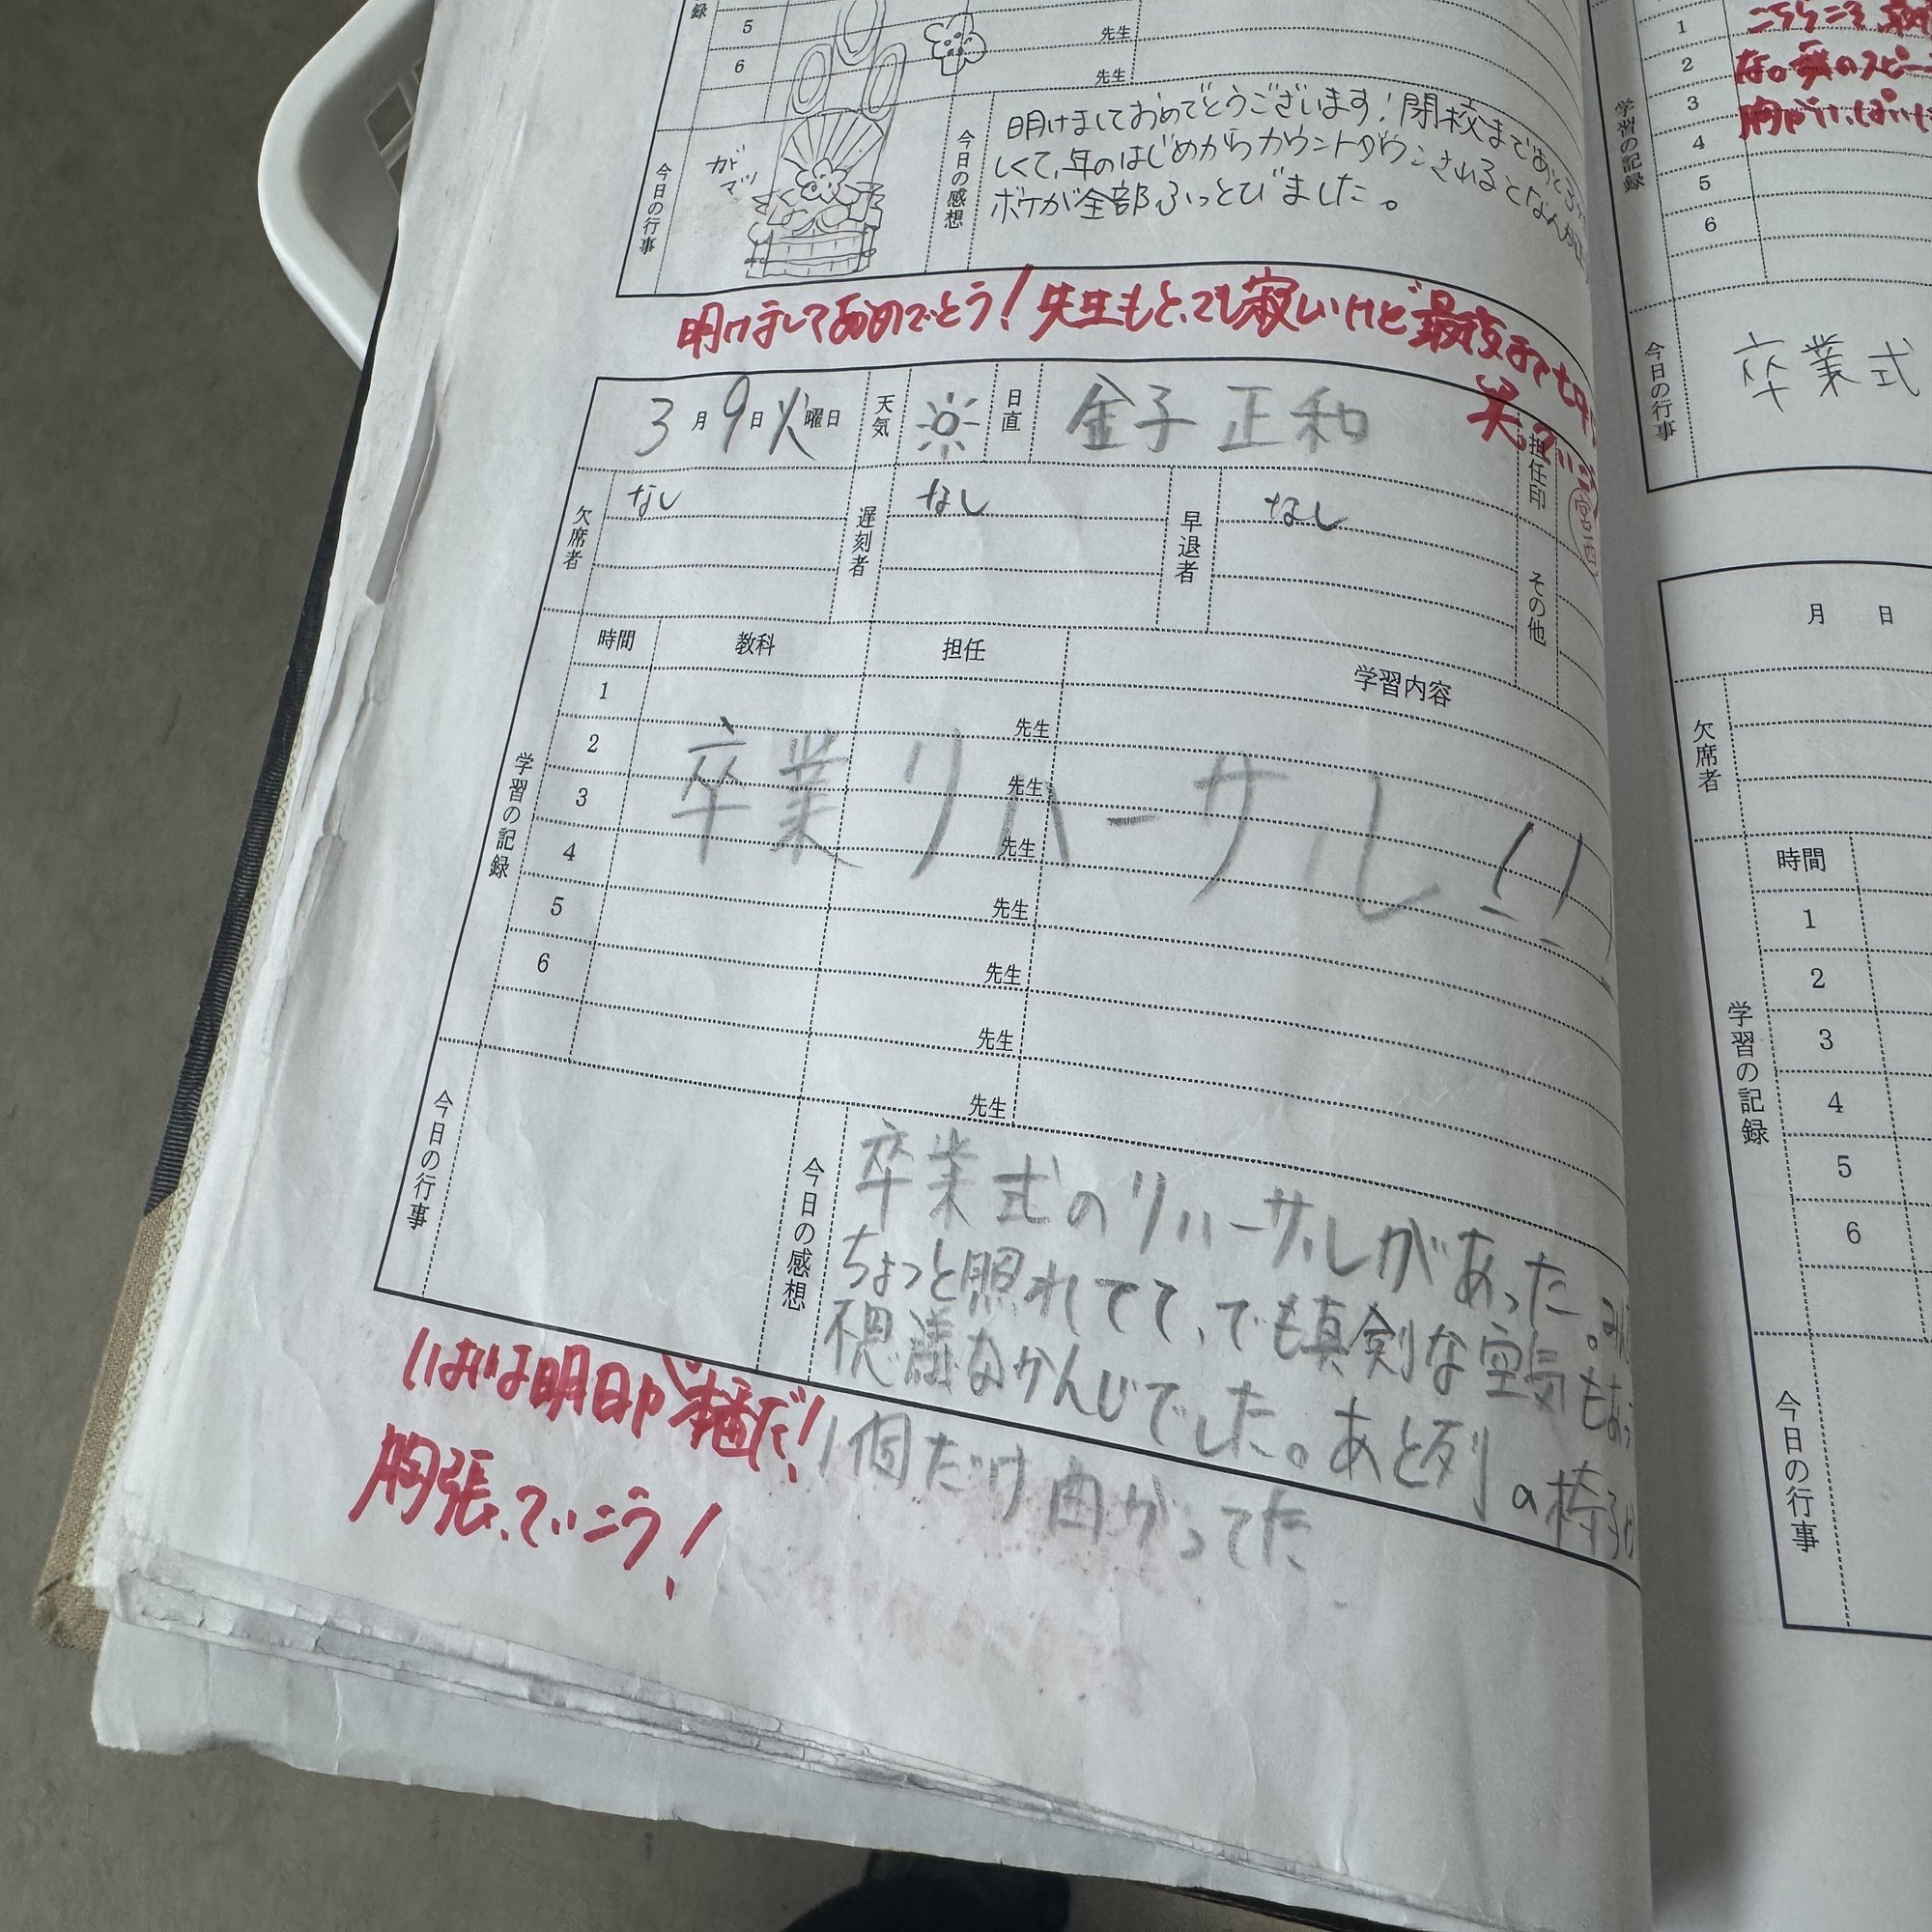 録
5
先生
6
先生
今日の行事
ガマッ
今日の感想
明けましておめでとうございます！閉校まであと
しくて、年のはじめからカウントダウンされるとなんか
ボケが全部ふっとびました。
明けましておめでとう！先生もとっても寂しいけど最後まで
笑っ
3月9日火曜日
天気
日直
金子正和
担任印
欠席者
なし
遅刻者
なし
早退者
なし
その他
学習の記録
時間
教科
担任
学習内容
1
先生
2
先生
3
先生
4
先生
5
先生
6
先生
先生
卒業リハーサル!!
今日の行事
今日の感想
卒業式のリハーサルがあった。み
ちょっと照れてて、でも真剣な空気もあっ
不思議なかんじでした。あと列の椅子が
1個だけ曲がってた
いよいよ明日が本番だ！
胸張っていこう！
学習の記録
1
2
3
4
5
6
こちらこそ
な。涙のスピー
胸がいっぱい
今日の行事
卒業式
月 日
欠席者
学習の記録
時間
1
2
3
4
5
6
今日の行事